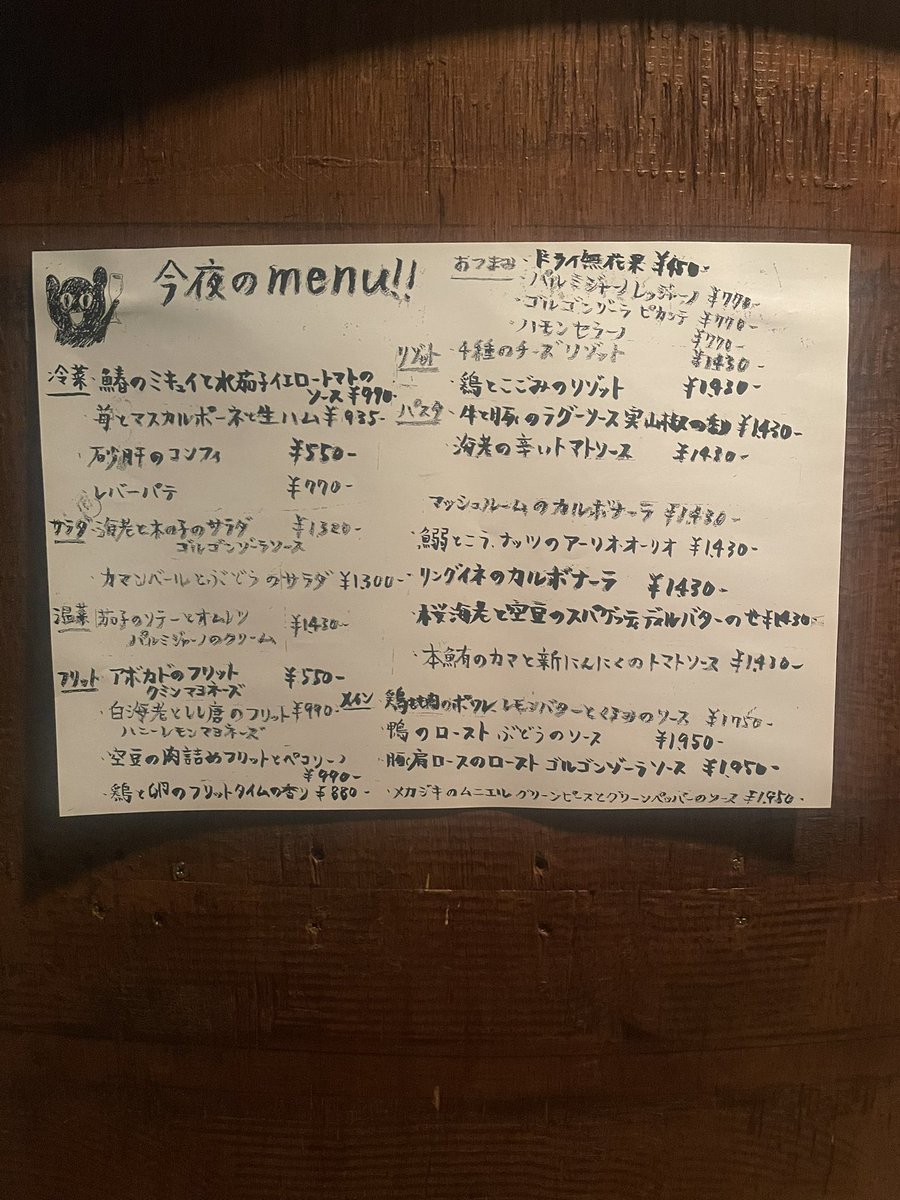 今夜のmenu!!
冷菜 ・鰆のミキュイと水茄子イエロートマトの
ソース ¥990-
・苺とマスカルポーネと生ハム ¥935-
・砂肝のコンフィ ¥550-
・レバーパテ ¥770-
サラダ ・海老と木の子のサラダ ¥1320-
ゴルゴンゾーラソース
・カマンベールとぶどうのサラダ ¥1300-
温菜 茄子のソテーとオムレツ ¥1430-
パルミジャーノのクリーム
フリット ・アボカドのフリット ¥550-
クミンマヨネーズ
・白海老としし唐のフリット ¥990-
ハニーレモンマヨネーズ
・空豆の肉詰めフリットとペコリーノ
¥990-
・鶏と卵のフリットタイムの香り ¥880-
おつまみ ・ドライ無花果 ¥450-
・パルミジャーノレッジャーノ ¥770-
・ゴルゴンゾーラ ピカンテ ¥770-
・ハモンセラーノ ¥770-
リゾット ・4種のチーズリゾット ¥1430-
・鶏とこごみのリゾット ¥1430-
パスタ ・牛と豚のラグーソース実山椒の香 ¥1430-
・海老の辛いトマトソース ¥1430-
マッシュルームのカルボナーラ ¥1430-
・鰯とこう、ナッツのアーリオオーリオ ¥1430-
・リングイネのカルボナーラ ¥1430-
・桜海老と空豆のスパゲッティディルバターのせ ¥1430-
・本鮪のカマと新にんにくのトマトソース ¥1430-
メイン ・鶏もも肉のポワレ レモンバターとくるみのソース ¥1750-
・鴨のロースト ぶどうのソース ¥1950-
・豚肩ロースのロースト ゴルゴンゾーラソース ¥1950-
・メカジキのムニエル グリーンピースとグリーンペッパーのソース ¥1950-